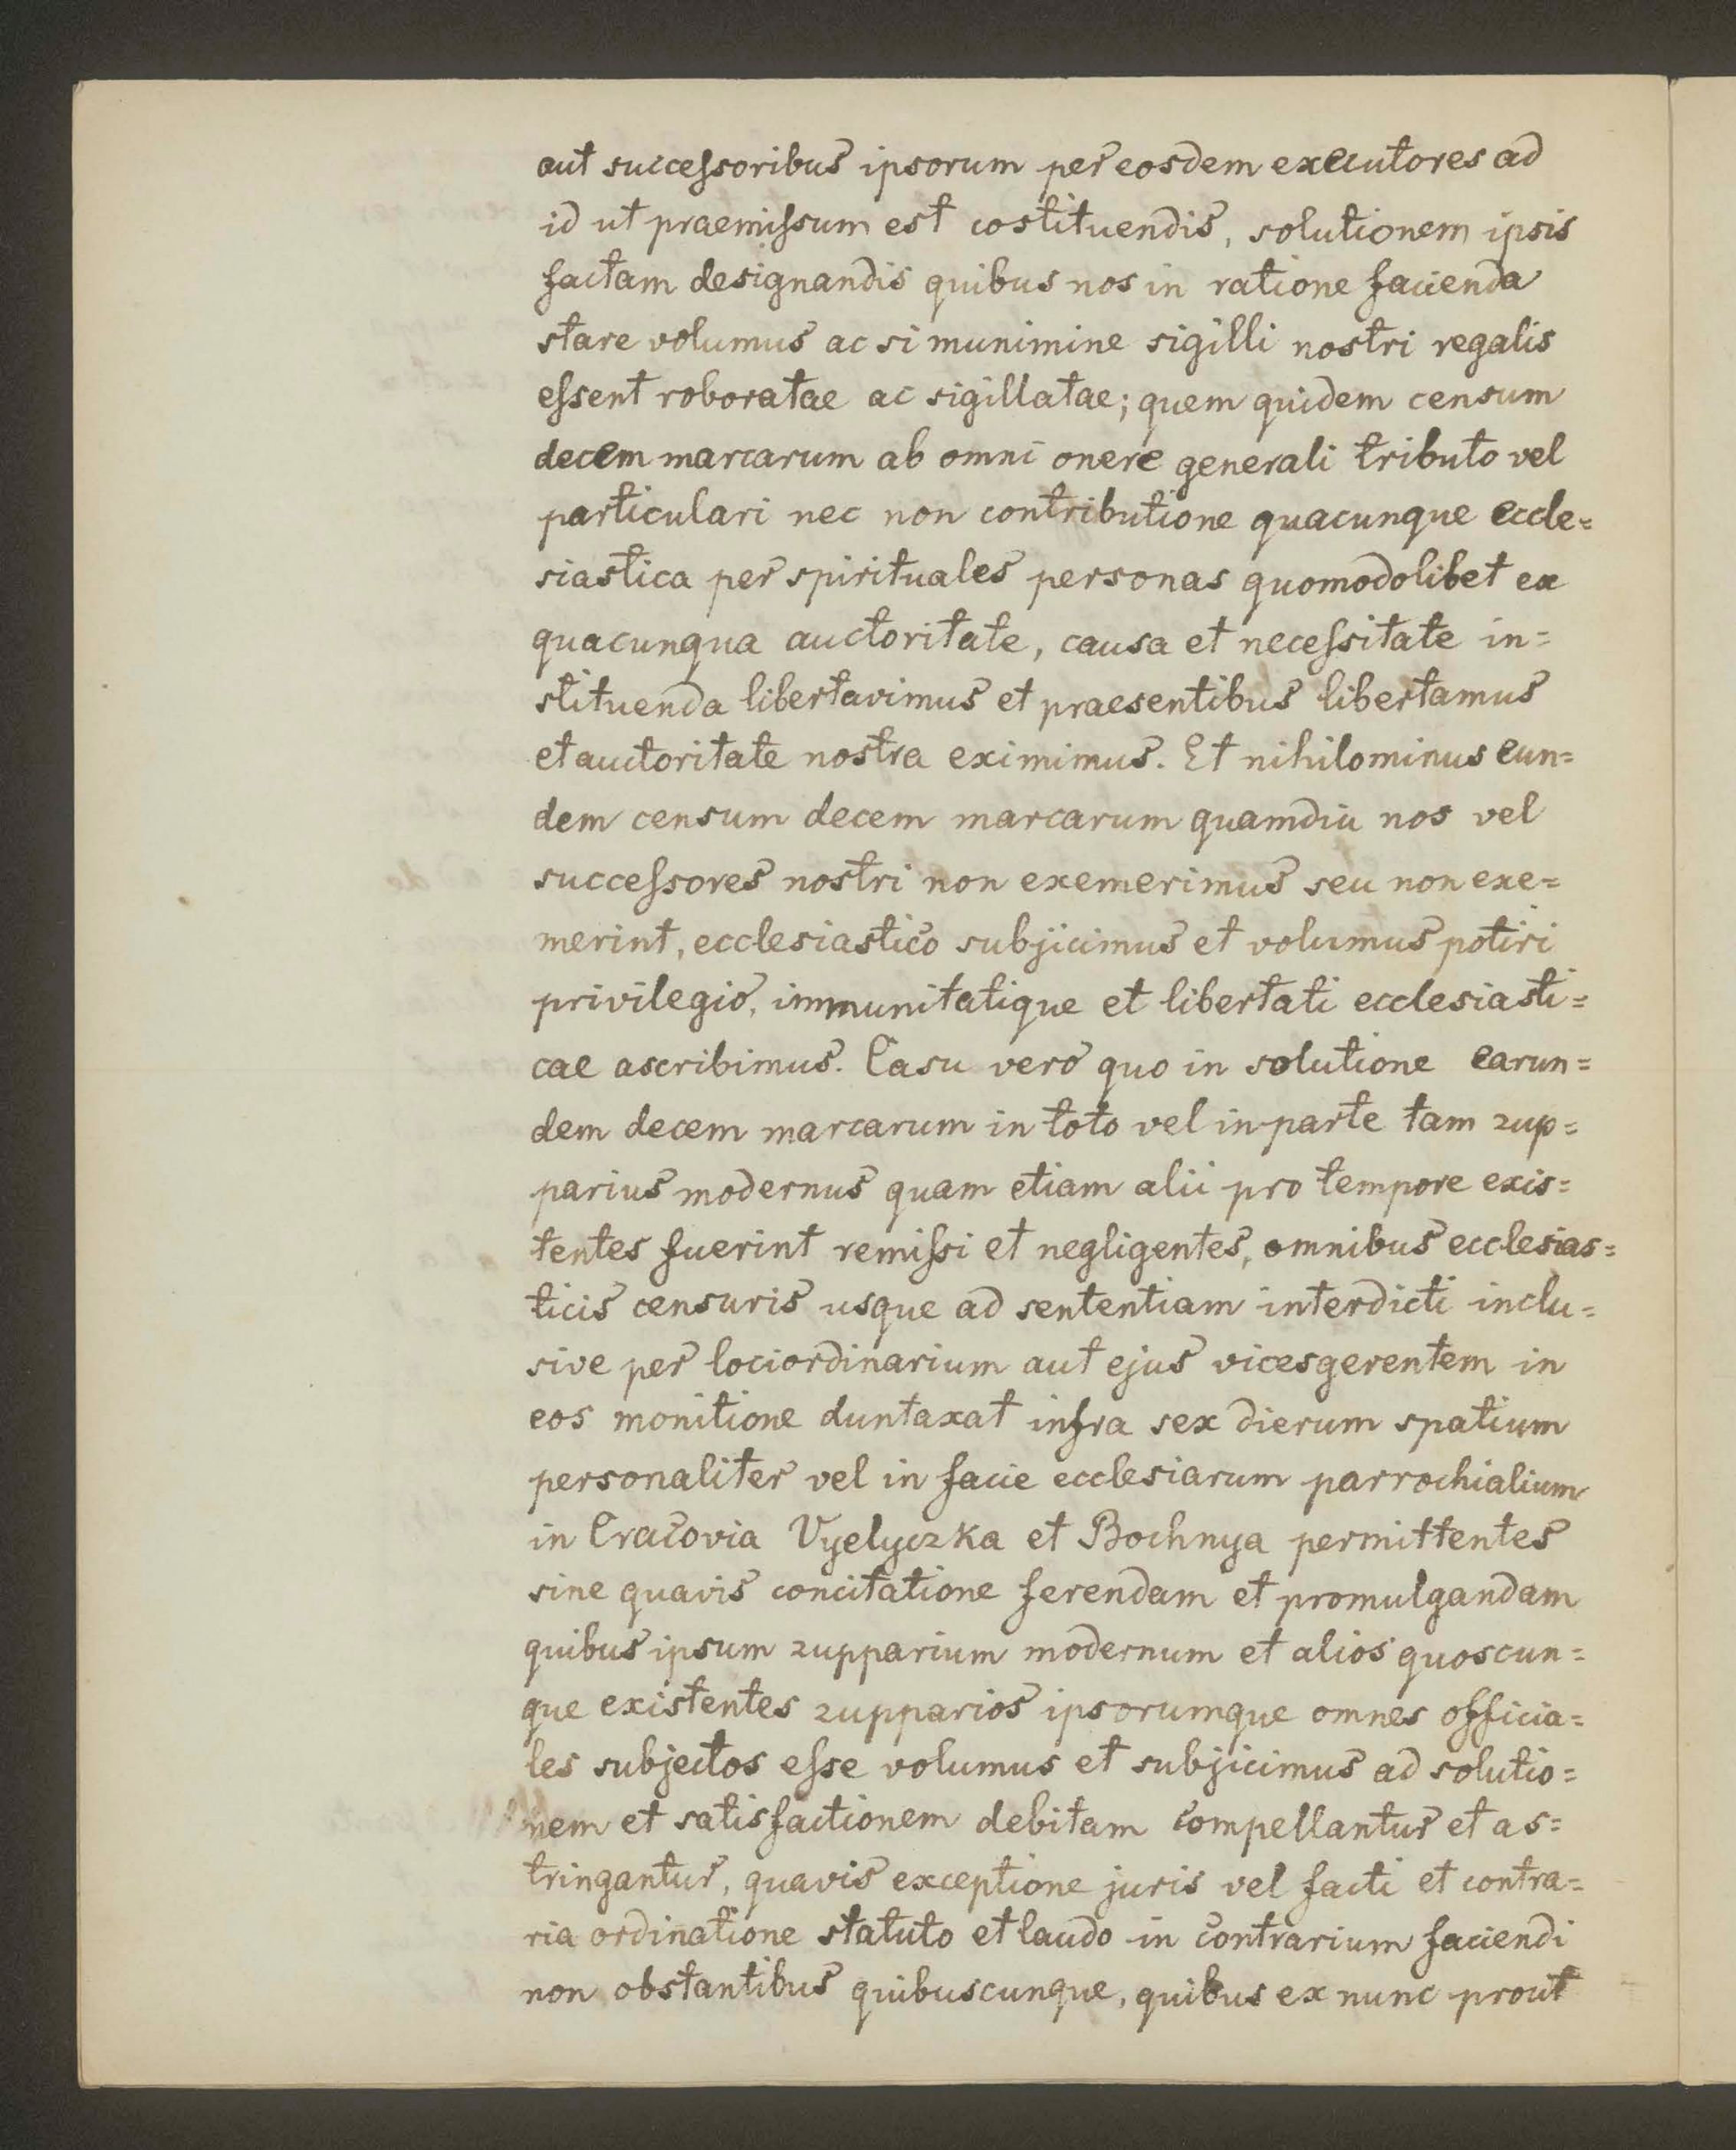 aut successoribus ipsorum per eosdem executores ad
id ut praemissum est costituendis, solutionem ipsis
factam designandis quibus nos in ratione facienda
stare volumus ac si munimine sigilli nostri regalis
essent roboratae ac sigillatae; quem quidem censum
decem marcarum ab omni onere generali tributo vel
particulari nec non contributione quacunque eccle=
siastica per spirituales personas quomodolibet ex
quacunqua auctoritate, causa et necessitate in=
stituenda libertavimus et praesentibus libertamus
et auctoritate nostra eximimus. Et nihilominus eun=
dem censum decem marcarum quamdiu nos vel
successores nostri non exemerimus seu non exe=
merint, ecclesiastico subjicimus et volumus potiri
privilegio, immunitatique et libertati ecclesiasti=
cae ascribimus. Casu vero quo in solutione earun=
dem decem marcarum in toto vel in parte tam zup=
parius modernus quam etiam alii pro tempore exis=
tentes fuerint remissi et negligentes, omnibus ecclesias=
ticis censuris usque ad sententiam interdicti inclu=
sive per lociordinarium aut ejus vicesgerentem in
eos monitione duntaxat infra sex dierum spatium
personaliter vel in facie ecclesiarum parrochialium
in Cracovia Vyelyczka et Bochnya permittentes
sine quavis concitatione ferendam et promulgandam
quibus ipsum zupparium modernum et alios quoscun=
que existentes zupparios ipsorumque omnes officia=
les subjectos esse volumus et subjicimus ad solutio=
nem et satisfactionem debitam compellantur et as=
tringantur, quavis exceptione juris vel facti et contra=
ria ordinatione statuto et laudo in contrarium faciendi
non obstantibus quibuscunque, quibus ex nunc prout